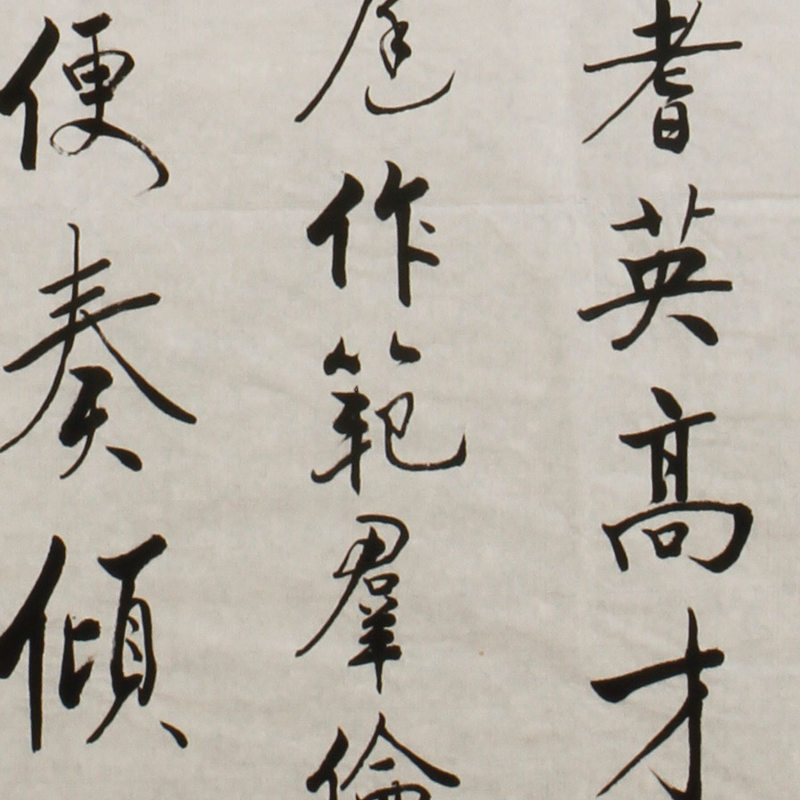 耆英高才
庭作範羣倫
便奏傾